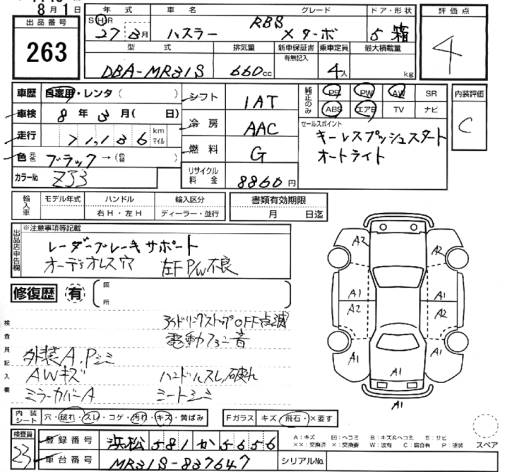 8月1日
出品番号
263
年式 車名 グレード ドア・形状
SH 27年3月 ハスラー RBS Xターボ 5 箱
型式 排気量 新車保証書 乗車定員 最大積載量
有無記入
DBA-MR31S 660cc 4人 kg
評価点
4
車歴 自家用・レンタ( )
車検 8年3月( 日)
走行 71,136 km マイル
色 元色 ブラック→(色替 )
カラーNo. ZJ3
シフト IAT
冷房 AAC
燃料 G
リサイクル料金 8860円
純正のみ PS PW AW SR
ABS エアB TV ナビ
セールスポイント
キーレスプッシュスタート
オートライト
内装評価
C
輸入車 モデル年式 ハンドル 輸入区分
右H・左H ディーラー・並行
書類有効期限
月 日迄
出品店申告欄
※注意事項等記載
レーダーブレーキサポート
オーディオレス穴 左F P/W不良
修復歴 有
箇所
検査員記入欄
アイドリングストップOFF点滅
電動ファン音
外装A.Pシミ
AWキズ ハンドルスレ破れ
ミラーカバーA シートシミ
A2 A2
A1 A1
A2 A2
A1 A1
A1
内装シート 穴・破れ・スレ・コゲ・汚れ・キズ・黄ばみ
Fガラス キズ・飛石・×要す
スペア
検査員
23
登録番号 浜松581か5656
車台番号 MR31S-837647
シリアルNo.